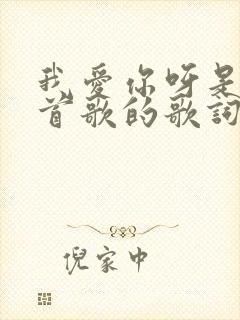 我爱你呀是
首歌的歌词
倪家中